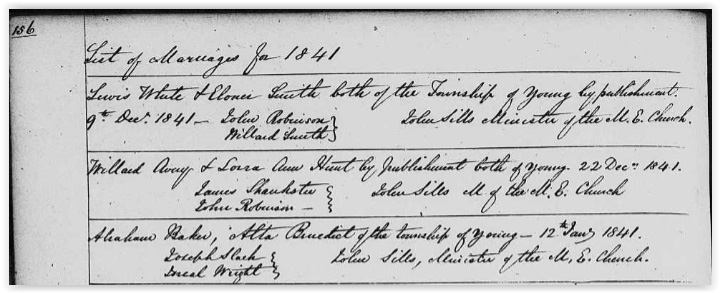 156
List of Marriages for 1841
Lewis White & Elonei Smith both of the Township of Young by publishment.
9th Decr 1841 — John Robinson } John Sills Minister of the M. E. Church.
Willard Smith
Willard Avery & Lorra Ann Hunt by publishment both of Young. 22 Decr 1841.
James Shankster } John Sills M of the M. E. Church
John Robinson —
Abraham Baker, Alta Benedict of the township of Young — 12th Jany 1841.
Joseph Slack } John Sills, Minister of the M. E. Church.
Wright